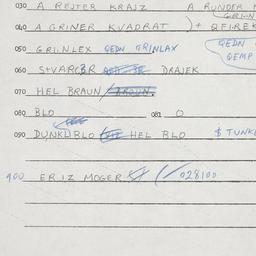 030 A REJTER KRAJZ A RUNDER
GRIN
040 A GRINER KVADRAT )+ QFIREK
050 GRINLEX GEDN GRINLAX GEDN
GEMP
060 STVARCBR DRAJEK
070 HEL BRAUN / BRAUN.
080 BLO 081 O
090 DUNKLIBLO HEL BLO $ TUNKL
900 ER IZ MOGER (/ 028100